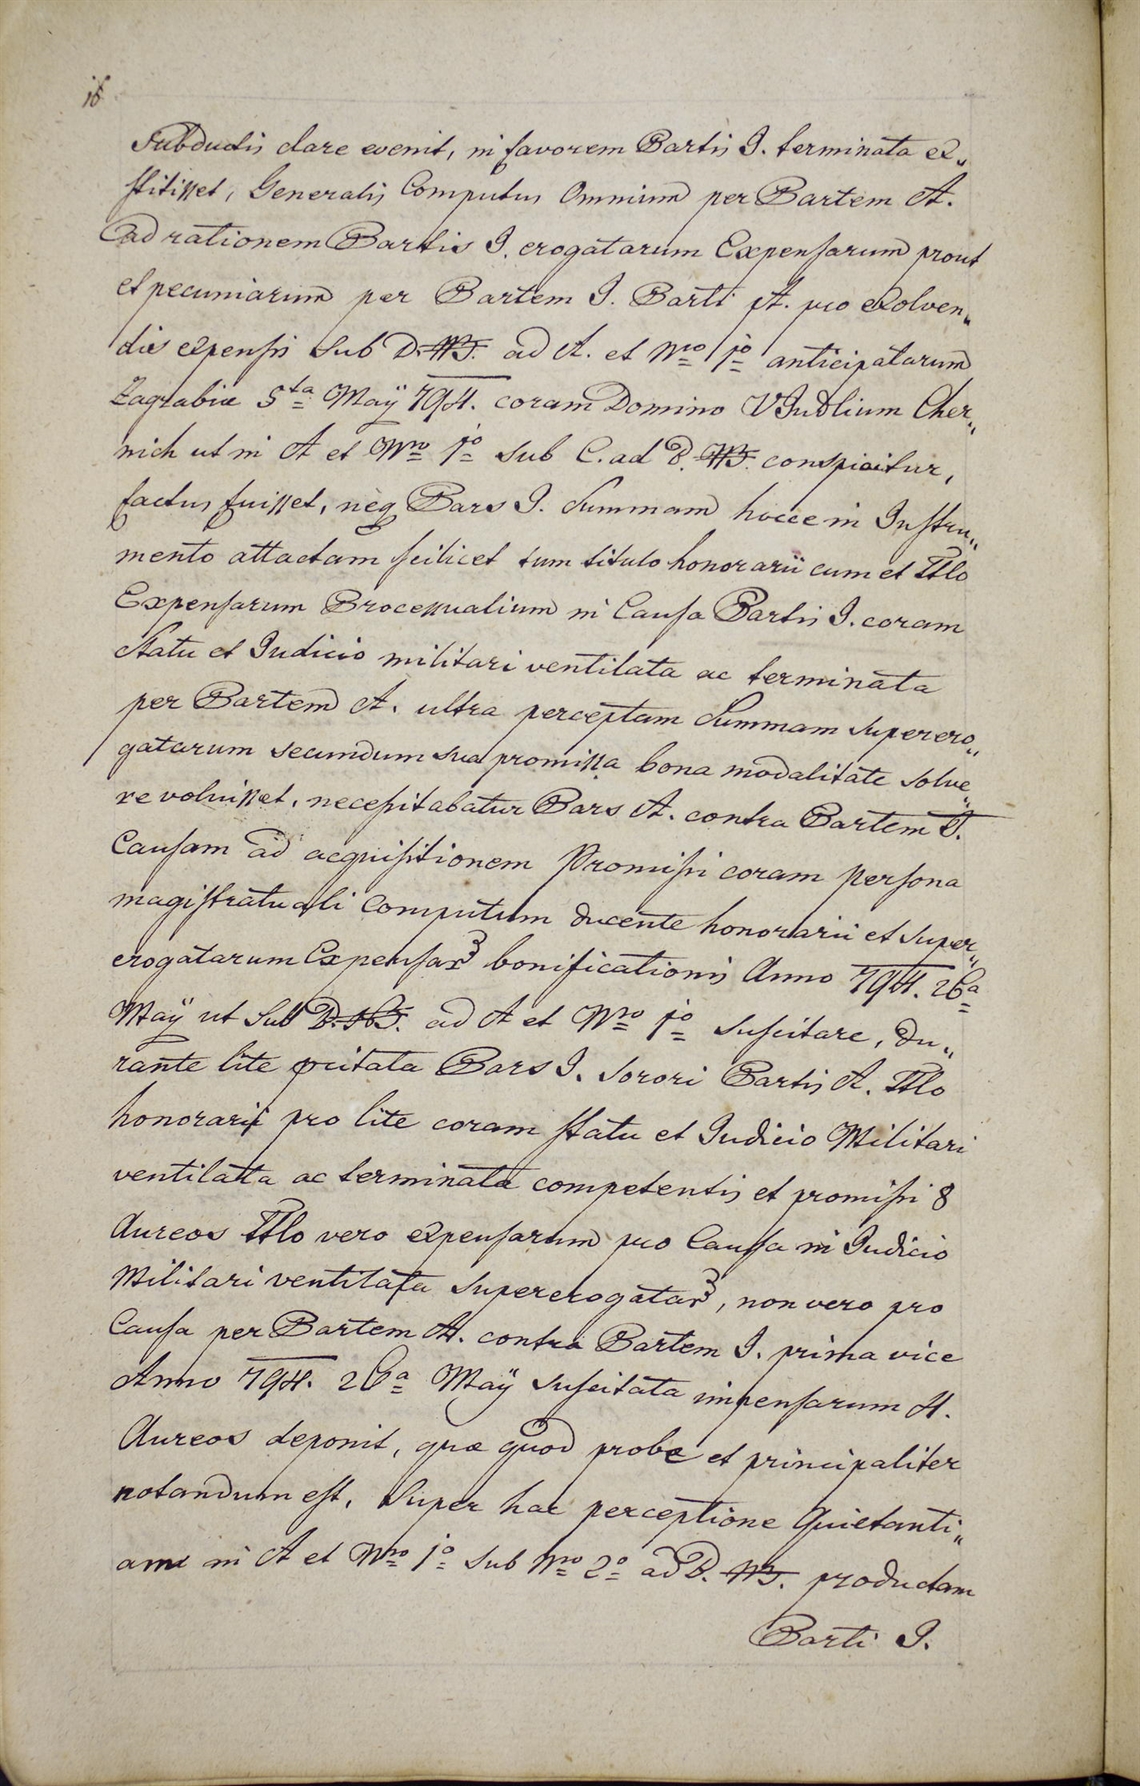 16
Subductis clare evenit, in favorem Partis I. terminata ex„
stitisset, Generalis Computus Omnium per Partem A.
ad rationem Partis I. erogatarum Expensarum prout
et pecuniarum per Partem I. Parti A. pro exolven„
dis expensis sub D. ad A. et Nro 1o anticipatarum
Zagrabiæ 5ta Maÿ 794. coram Domino VJudlium Cher„
nich ut in A et Nro 1o sub C. ad D. conspicitur,
factus fuisset, neq Pars I. Summam hocce in Instru„
mento attactam scilicet tum titulo honorarii cum et Ttlo
Expensarum Processualium in Causa Partis I. coram
Statu et Judicio militari ventilata ac terminata
per Partem A. ultra perceptam Summam superero„
gatarum secundum sua promissa bona modalitate solve„
re voluisset, necessitabatur Pars A. contra Partem I.
Causam ad acquisitionem Promissi coram persona
magistratuali Computum ducente honorarii et super„
erogatarum Expensar bonificationis Anno 794. 26a
Maÿ ut sub ad A et Nro 1o suscitare, du„
rante lite citata Pars I. Sorori Partis A. Ttlo
honorarii pro lite coram statu et Judicio Militari
ventilata ac terminata competentis et promissi 8
Aureos Ttlo vero expensarum pro Causa in Judicio
Militari ventilata supererogatar, non vero pro
Causa per Partem A. contra Partem I. prima vice
Anno 794. 26a Maÿ suscitata impensarum 4.
Aureos deponit, quæ quod probe et principaliter
notandum est, super hac perceptione Quietanti„
am in A et Nro 1o sub Nro 2o ad D. productam
Parti I.